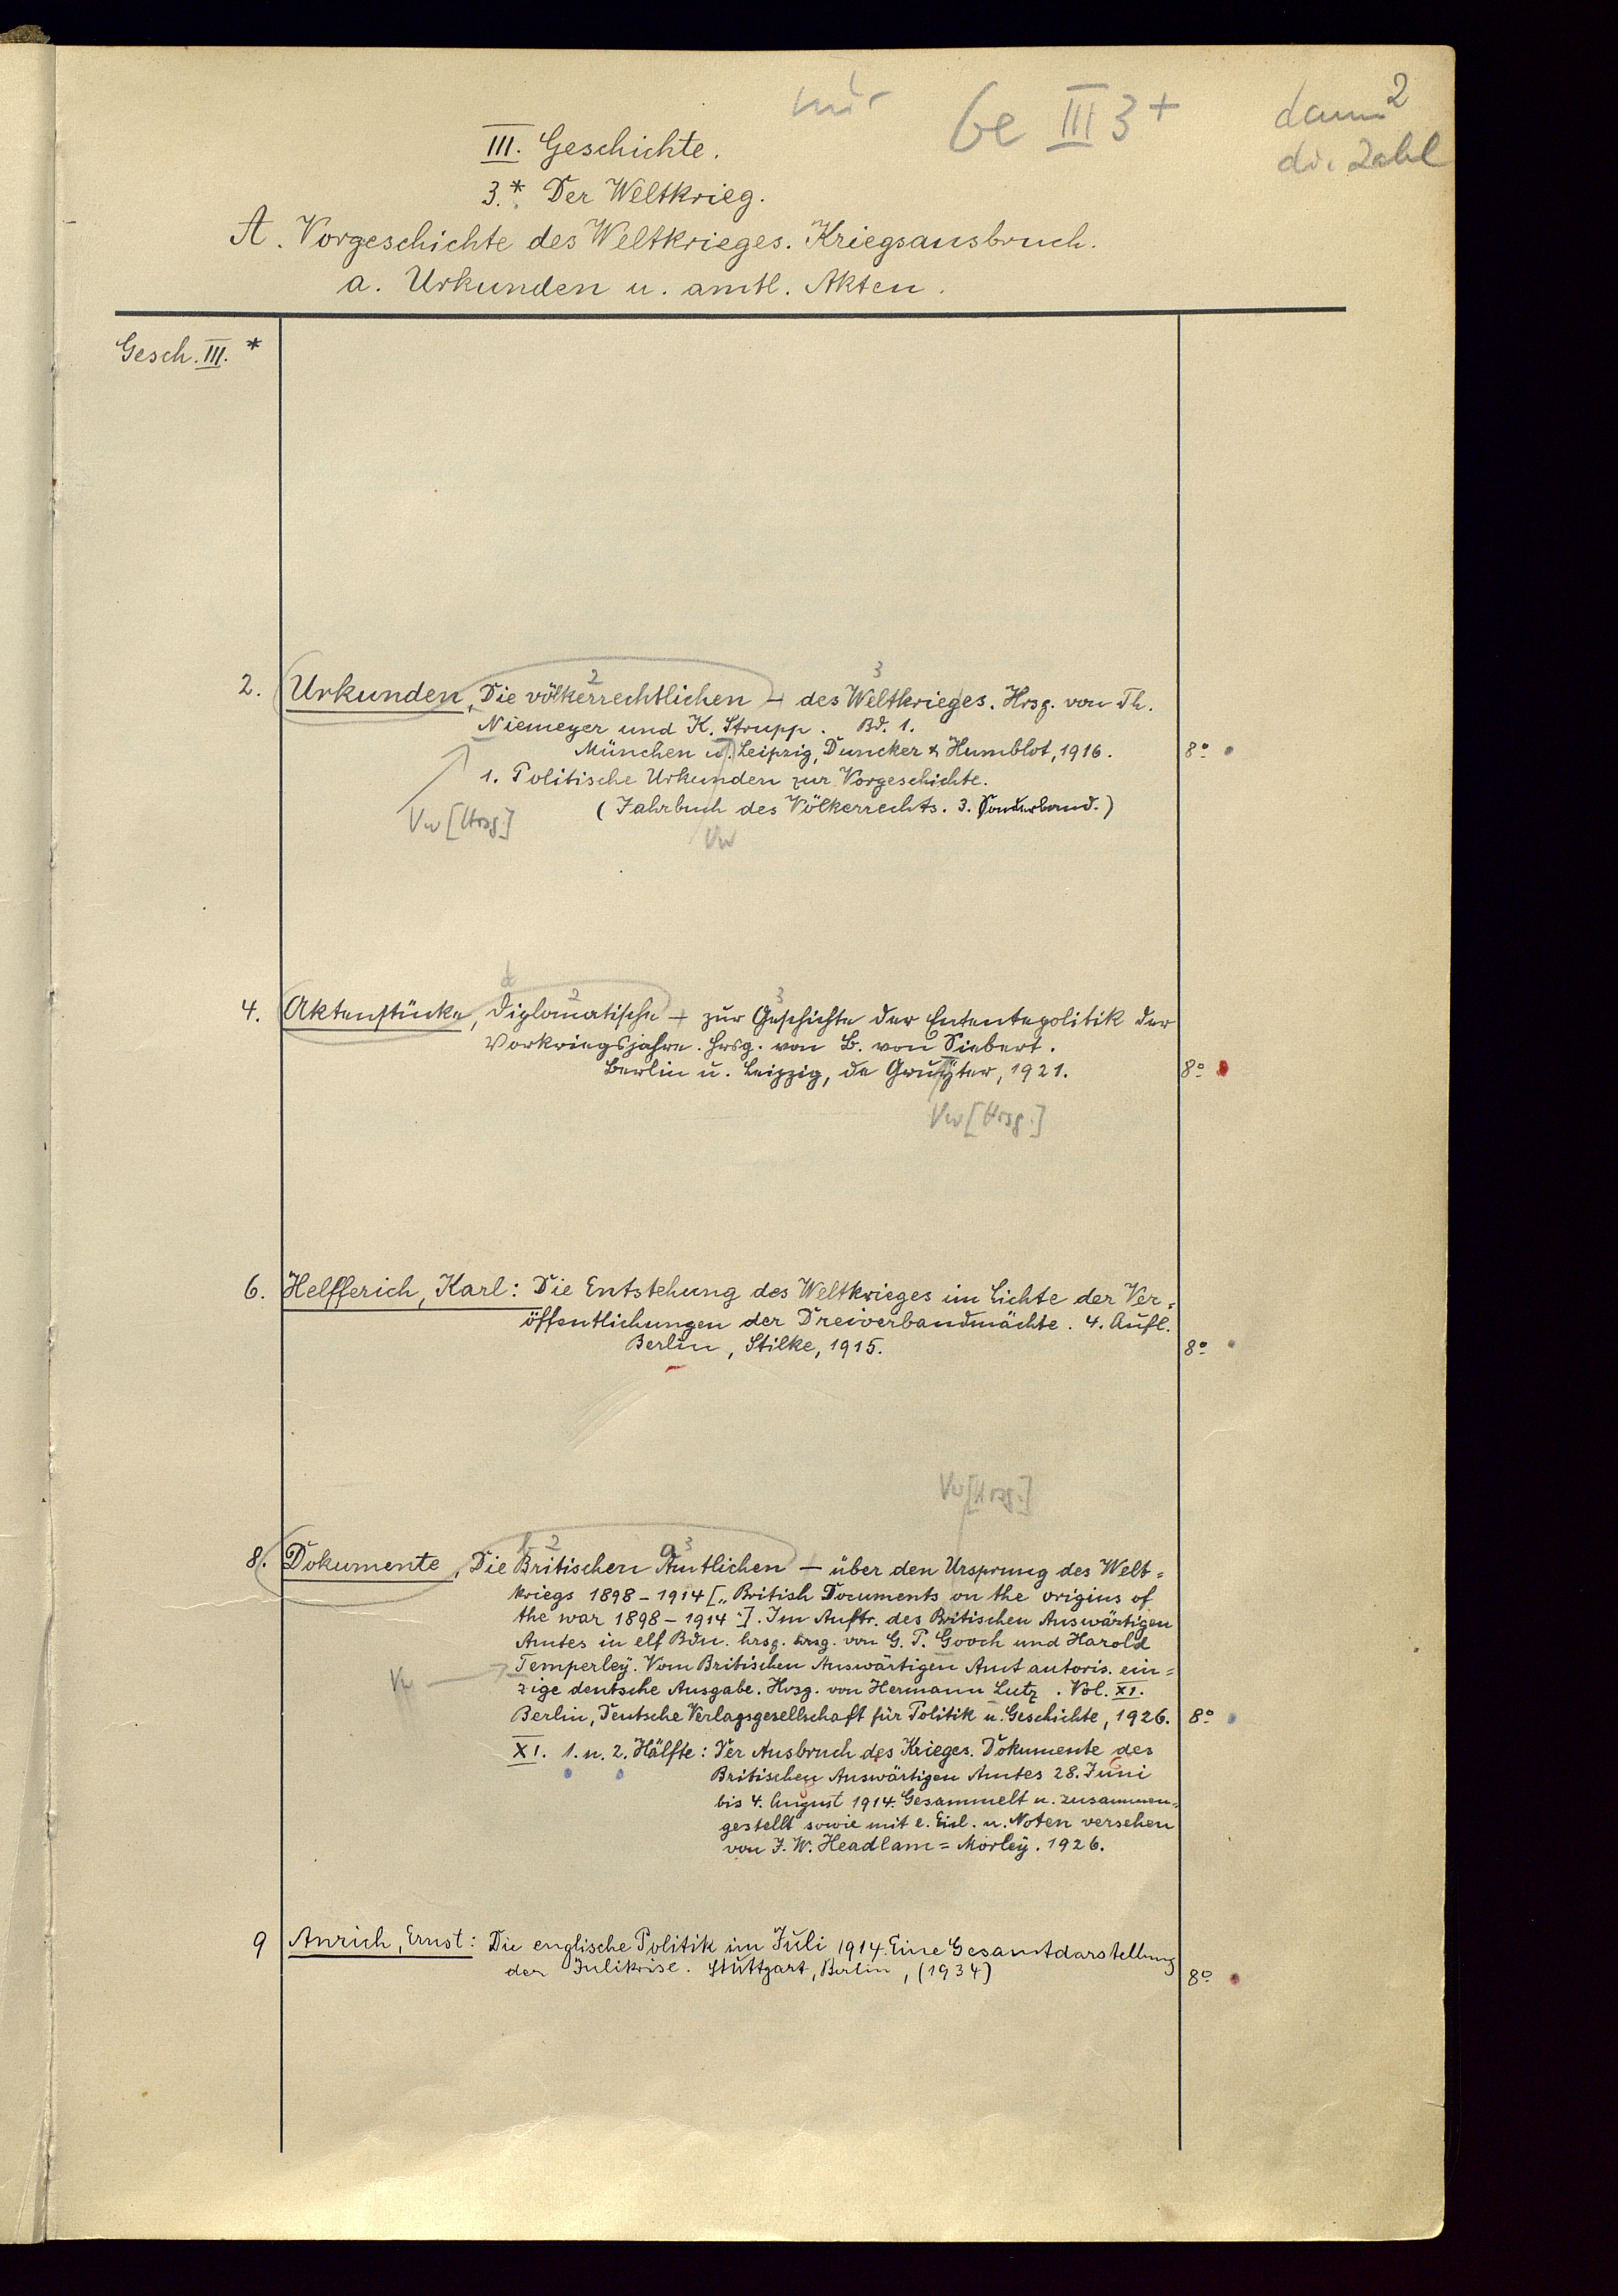 nur Ge III 3+ dann 2
die Zahl
III. Geschichte.
3.* Der Weltkrieg.
A. Vorgeschichte des Weltkrieges. Kriegsausbruch.
a. Urkunden u. amtl. Akten.
Gesch. III. *
2 3
2. Urkunden, Die völkerrechtlichen – des Weltkrieges. Hrsg. von Th.
Niemeyer und K. Strupp. Bd. 1.
München u. Leipzig, Duncker & Humblot, 1916. 8°
1. Politische Urkunden zur Vorgeschichte.
(Jahrbuch des Völkerrechts. 3. Sonderband.)
Vw [Hrsg.] Vw
d 2 3
4. Aktenstücke, Diplomatische – zur Geschichte der Ententepolitik der
Vorkriegsjahre. Hrsg. von B. von Siebert.
Berlin u. Leipzig, de Gruyter, 1921. 8°
Vw [Hrsg.]
6. Helfferich, Karl: Die Entstehung des Weltkrieges im Lichte der Ver=
öffentlichungen der Dreiverbandmächte. 4. Aufl.
Berlin, Stilke, 1915. 8°
Vw [Hrsg.]
b 2 a 3
8. Dokumente, Die Britischen Amtlichen – über den Ursprung des Welt=
kriegs 1898–1914 [„British Documents on the origins of
the war 1898–1914“]. Im Auftr. des Britischen Auswärtigen
Amtes in elf Bdn. hrsg. hrsg. von G. P. Gooch und Harold
Temperley. Vom Britischen Auswärtigen Amt autoris. ein=
Vw
zige deutsche Ausgabe. Hrsg. von Hermann Lutz. Vol. XI.
Berlin, Deutsche Verlagsgesellschaft für Politik u. Geschichte, 1926. 8°
XI. 1. u. 2. Hälfte: Der Ausbruch des Krieges. Dokumente des
Britischen Auswärtigen Amtes 28. Juni
bis 4. August 1914. Gesammelt u. zusammen=
gestellt sowie mit e. Einl. u. Noten versehen
von J. W. Headlam=Morley. 1926.
9 Anrich, Ernst: Die englische Politik im Juli 1914. Eine Gesamtdarstellung
der Julikrise. Stuttgart, Berlin, (1934) 8°